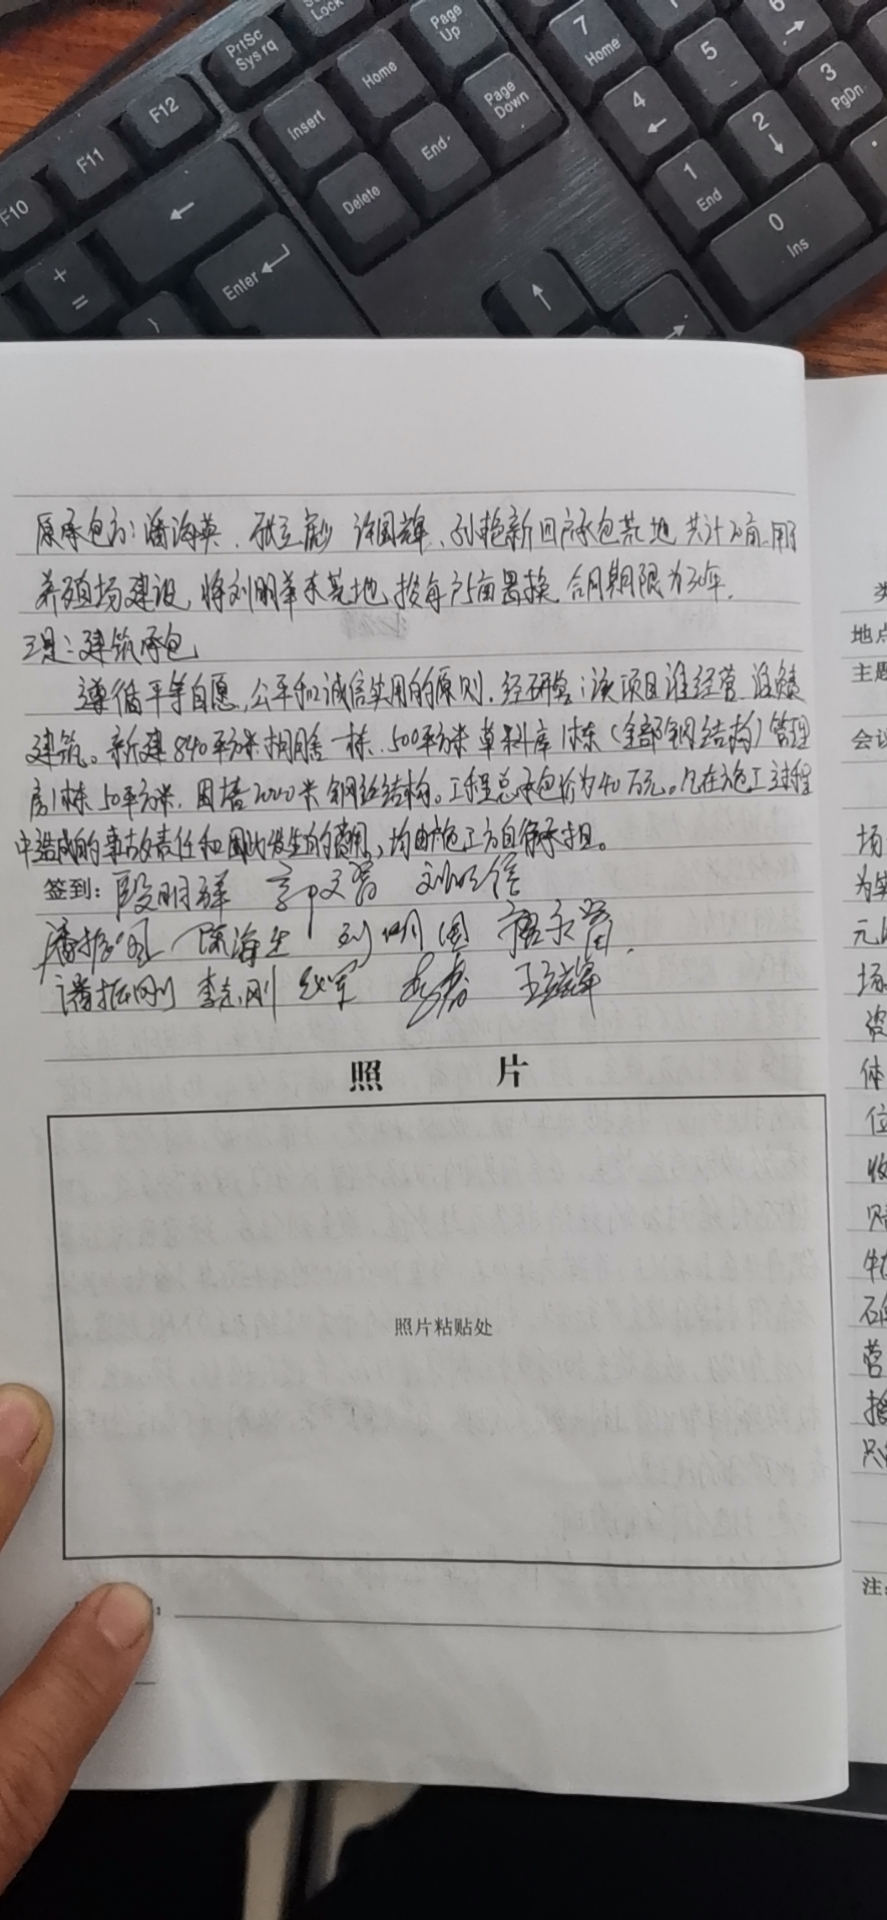 PrtSc
Sys rq
Lock
Page
Up
7
Home
F12
Home
5
6
F11
Insert
Page
Down
4
3
PgDn
F10
End
2
Delete
1
End
0
Ins
+
=
Enter
}
原承包方：潘海英、张立彪 许国辉、刘艳新四户承包荒地 共计20亩 用于
养殖场建设，将刘明革东荒地，按每户5亩置换，合同期限为30年。
三是：建筑承包
遵循平等自愿，公平和诚信实用的原则，经研究：该项目谁经营 谁负责
建筑。新建840平方米棚舍一栋，500平方米草料库1栋（全部钢结构）管理
房1栋50平方米，围墙2000米钢丝结构。工程总承包价为40万元。凡在施工过程
中造成的事故责任和因此发生的费用，均由施工方自行承担。
签到：段明祥 郭文富
陈海生 刘明国
潘振刚 李志刚
照 片
照片粘贴处
地点
主题
会议
场
为实
元
场
资
体
位
收
营
注：